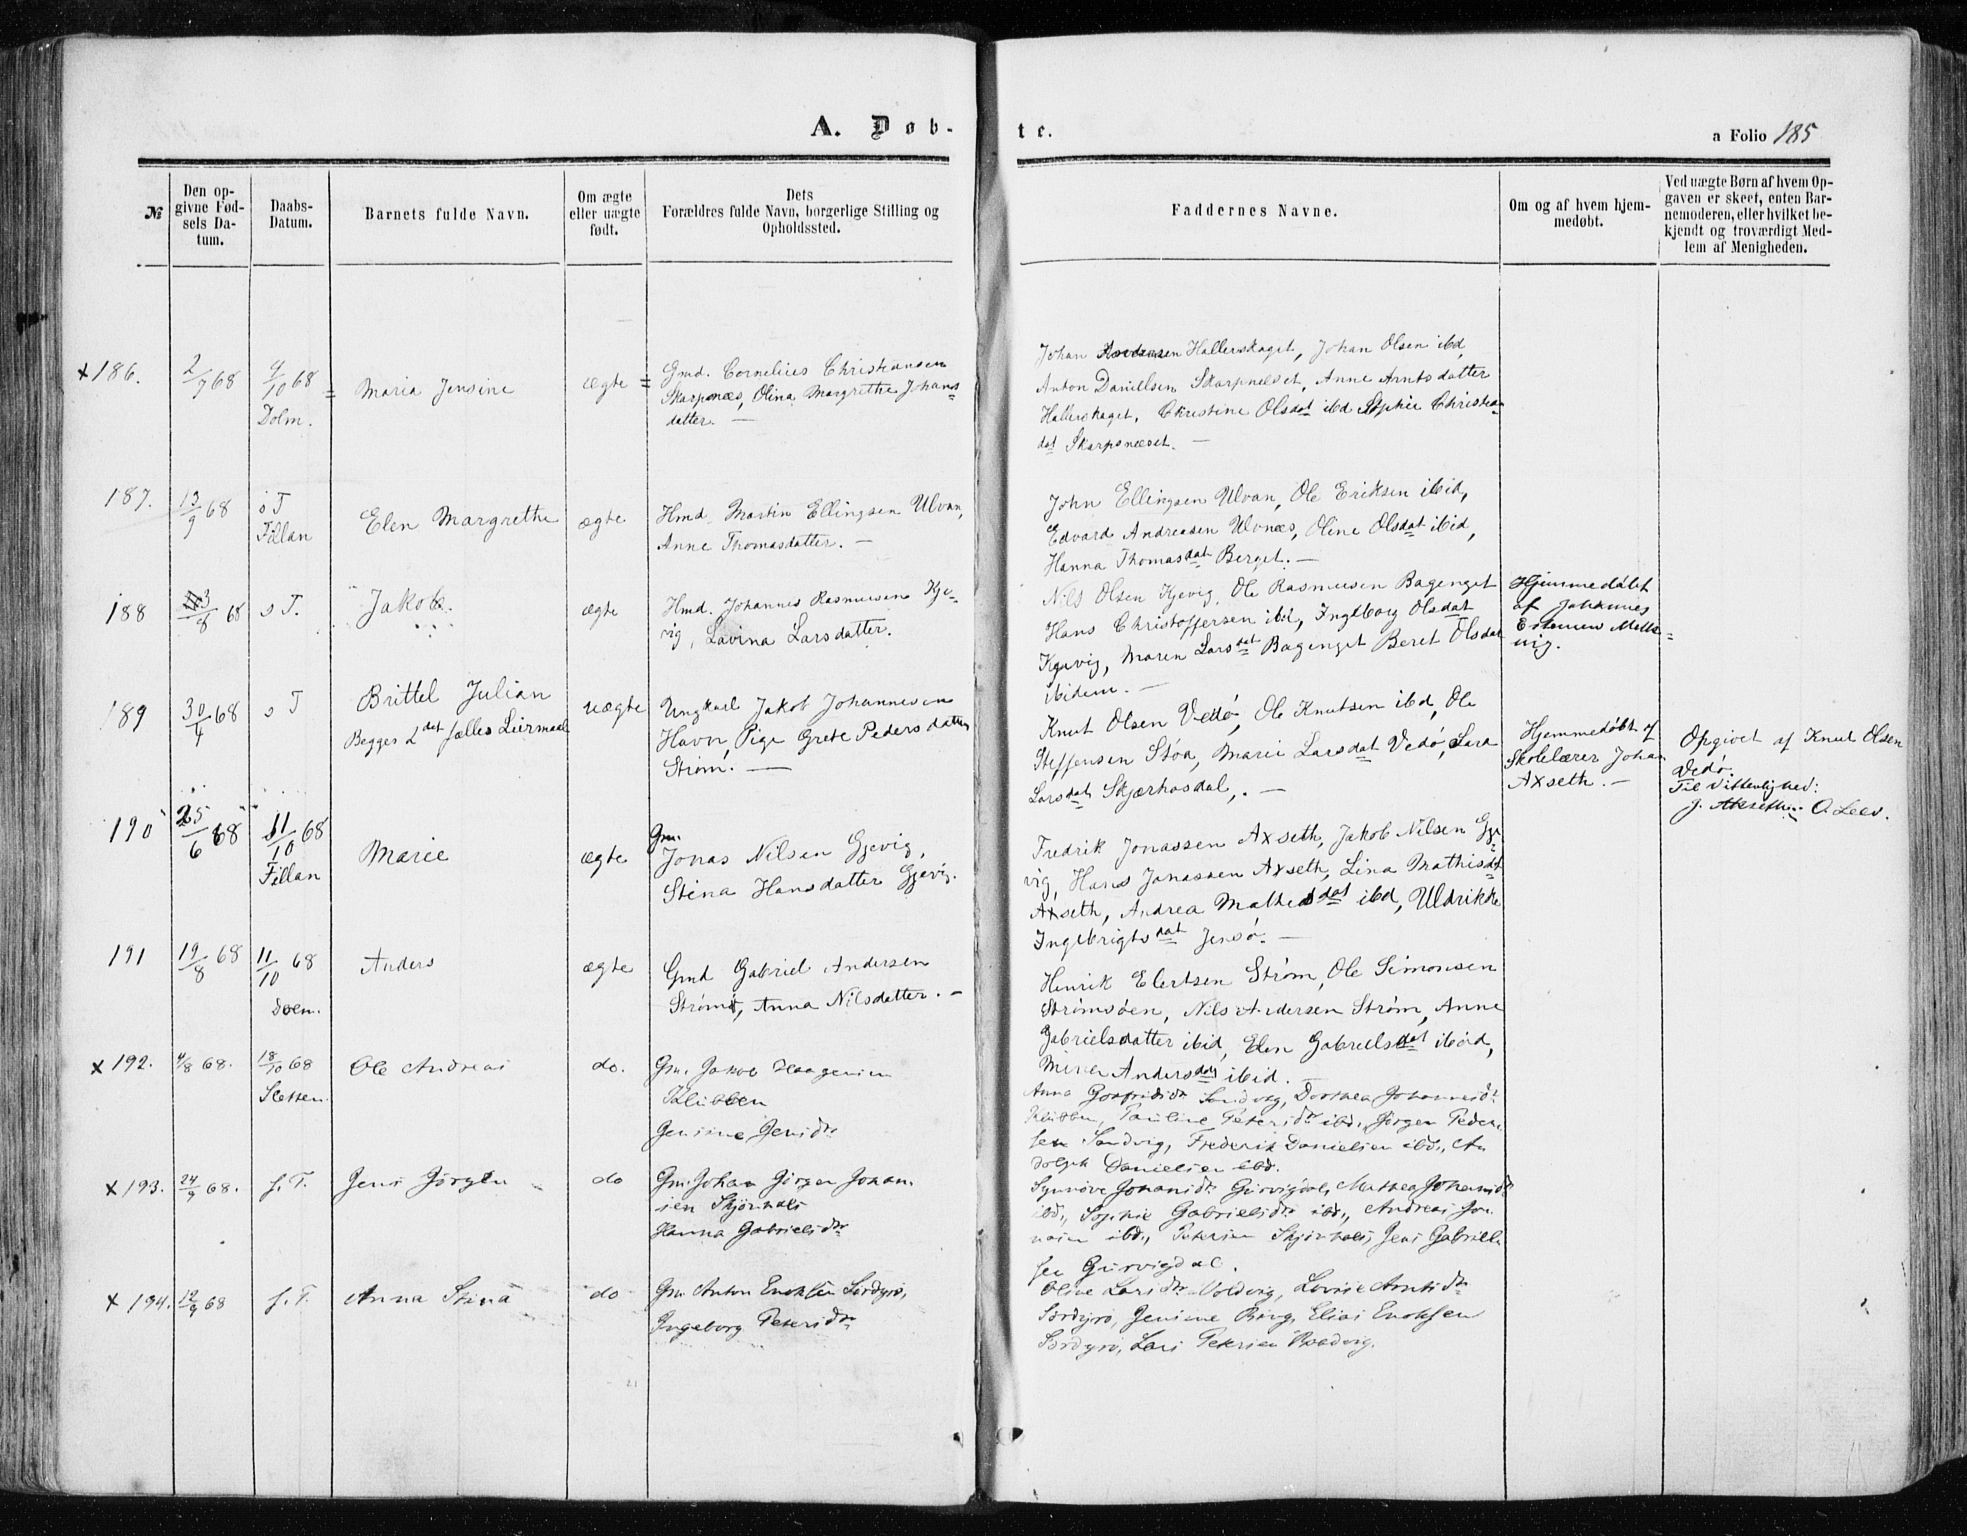 A. Døb-
te.
a Folio 185
№
Den op-
givne Fød-
sels Da-
tum.
Daabs-
Datum.
Barnets fulde Navn.
Om ægte
eller uægte
født.
Dets
Forældres fulde Navn, borgerlige Stilling og
Opholdssted.
Faddernes Navne.
Om og af hvem hjem-
medøbt.
Ved uægte Børn af hvem Op-
gaven er skeet, enten Bar-
nemoderen, eller hvilket be-
kjendt og troværdigt Med-
lem af Menigheden.
x 186.
2/7 68
4/10 68
Dolm.
Maria Jensine
ægte
Gmd. Cornelius Christiansen
Skarpnæs, Olina Margrethe Johans
datter. —
Johan Hallerskaget, Johan Olsen ibd,
Anton Danielsen Skarpnæset, Anne Arntsdatter
Hallerskaget, Christine Olsdat ibd Sophie Christian
dat Skarpsnæset. —
187.
13/9 68
s T
Fillan
Elen Margrethe
ægte
Hmd. Martin Ellingsen Ulvan,
Anne Thomasdatter. —
John Ellingsen Ulvan, Ole Eriksen ibid,
Edvard Andreasen Ulvnæs, Oline Olsdat ibid,
Hanna Thomasdat Berget. —
188
3/8 68
s T.
Jakob.
ægte
Hmd. Johannes Rasmusen Kje-
vig, Lavina Larsdatter.
Nils Olsen Kjevig, Ole Rasmusen Bagenget
Hans Christoffersen ibd, Ingeborg Olsdat
Kjævig, Maren Larsdat Bagenget Beret Olsdat
ibidem. —
Hjemmedøbt
af Johannes
Estensen Melke-
vig.
189
30/4 68
s T
Brittel Julian
Begges 2det fælles Leiermaal
uægte
Ungkarl Jakob Johannesen
Havn, Pige Grete Pedersdatter
Strøm. —
Knut Olsen Vedø, Ole Knutsen ibd, Ole
Steffensen Støa, Marie Larsdat Vedø, Sara
Larsdat Skjærhosdal, . —
Hjemmedøbt af
Skolelærer Johan
Axseth. —
Opgivet af Knut Olsen
Vedø.
Til Vitterlighed:
J. Akseth. O. Lees.
190
25/6 68
11/10 68
Fillan
Marie
ægte
Gm.
Jonas Nilsen Gjevig,
Stina Hansdatter Gjevig.
Fredrik Jonassen Axseth, Jakob Nilsen Gje
vig, Hans Jonassen Axseth, Lina Mathisdat
Axseth, Andrea Mathesdat ibd, Uldrikke
Ingebrigtsdat Jensø. —
191
19/8 68
11/10 68
Doem.
Anders
ægte
Gmd Gabriel Andersen
Strøm, Anna Nilsdatter. —
Henrik Elertsen Strøm, Ole Simonsen
Strømsøen, Nils Andersen Strøm, Anne
Gabrielsdatter ibid, Elen Gabrielsdat ibid,
Mina Andersdat ibid. —
x 192.
4/8 68.
18/10 68
Sletten
Ole Andreas
do.
Gm. Jakob Haagensen
Klubben
Jensine Jensdtr
Anna Sandvig, Dorthea Johannesdtr
Klubben, Pauline Petersdtr ibd., Jørgen Peder-
sen Sandvig, Frederik Danielsen ibd., A
dolph Danielsen ibd.
x 193.
24/9 68.
s. T.
Jens Jørgen
do
Gm. Johan Jørgen Johan
sen Skjørhals
Hanna Gabrielsdtr
Synnøve Johansdtr Gurvigdal, Mathea Johansdtr
ibd., Sophie Gabrielsdtr ibd., Andreas Jo
ibd., Petersen Skjørhals, Jens Gabriel
sen Gurvigdal.
x 194.
12/9 68
s. T.
Anna Stina
do
Gm. Anton Enoksen Sørdyrø,
Ingeborg Petersdtr
Oline Larsdtr Voldvig, Lovise Arntsdtr
Sørdyrø, Jensine Berg, Elias Enoksen
Sørdyrø, Lars Petersen